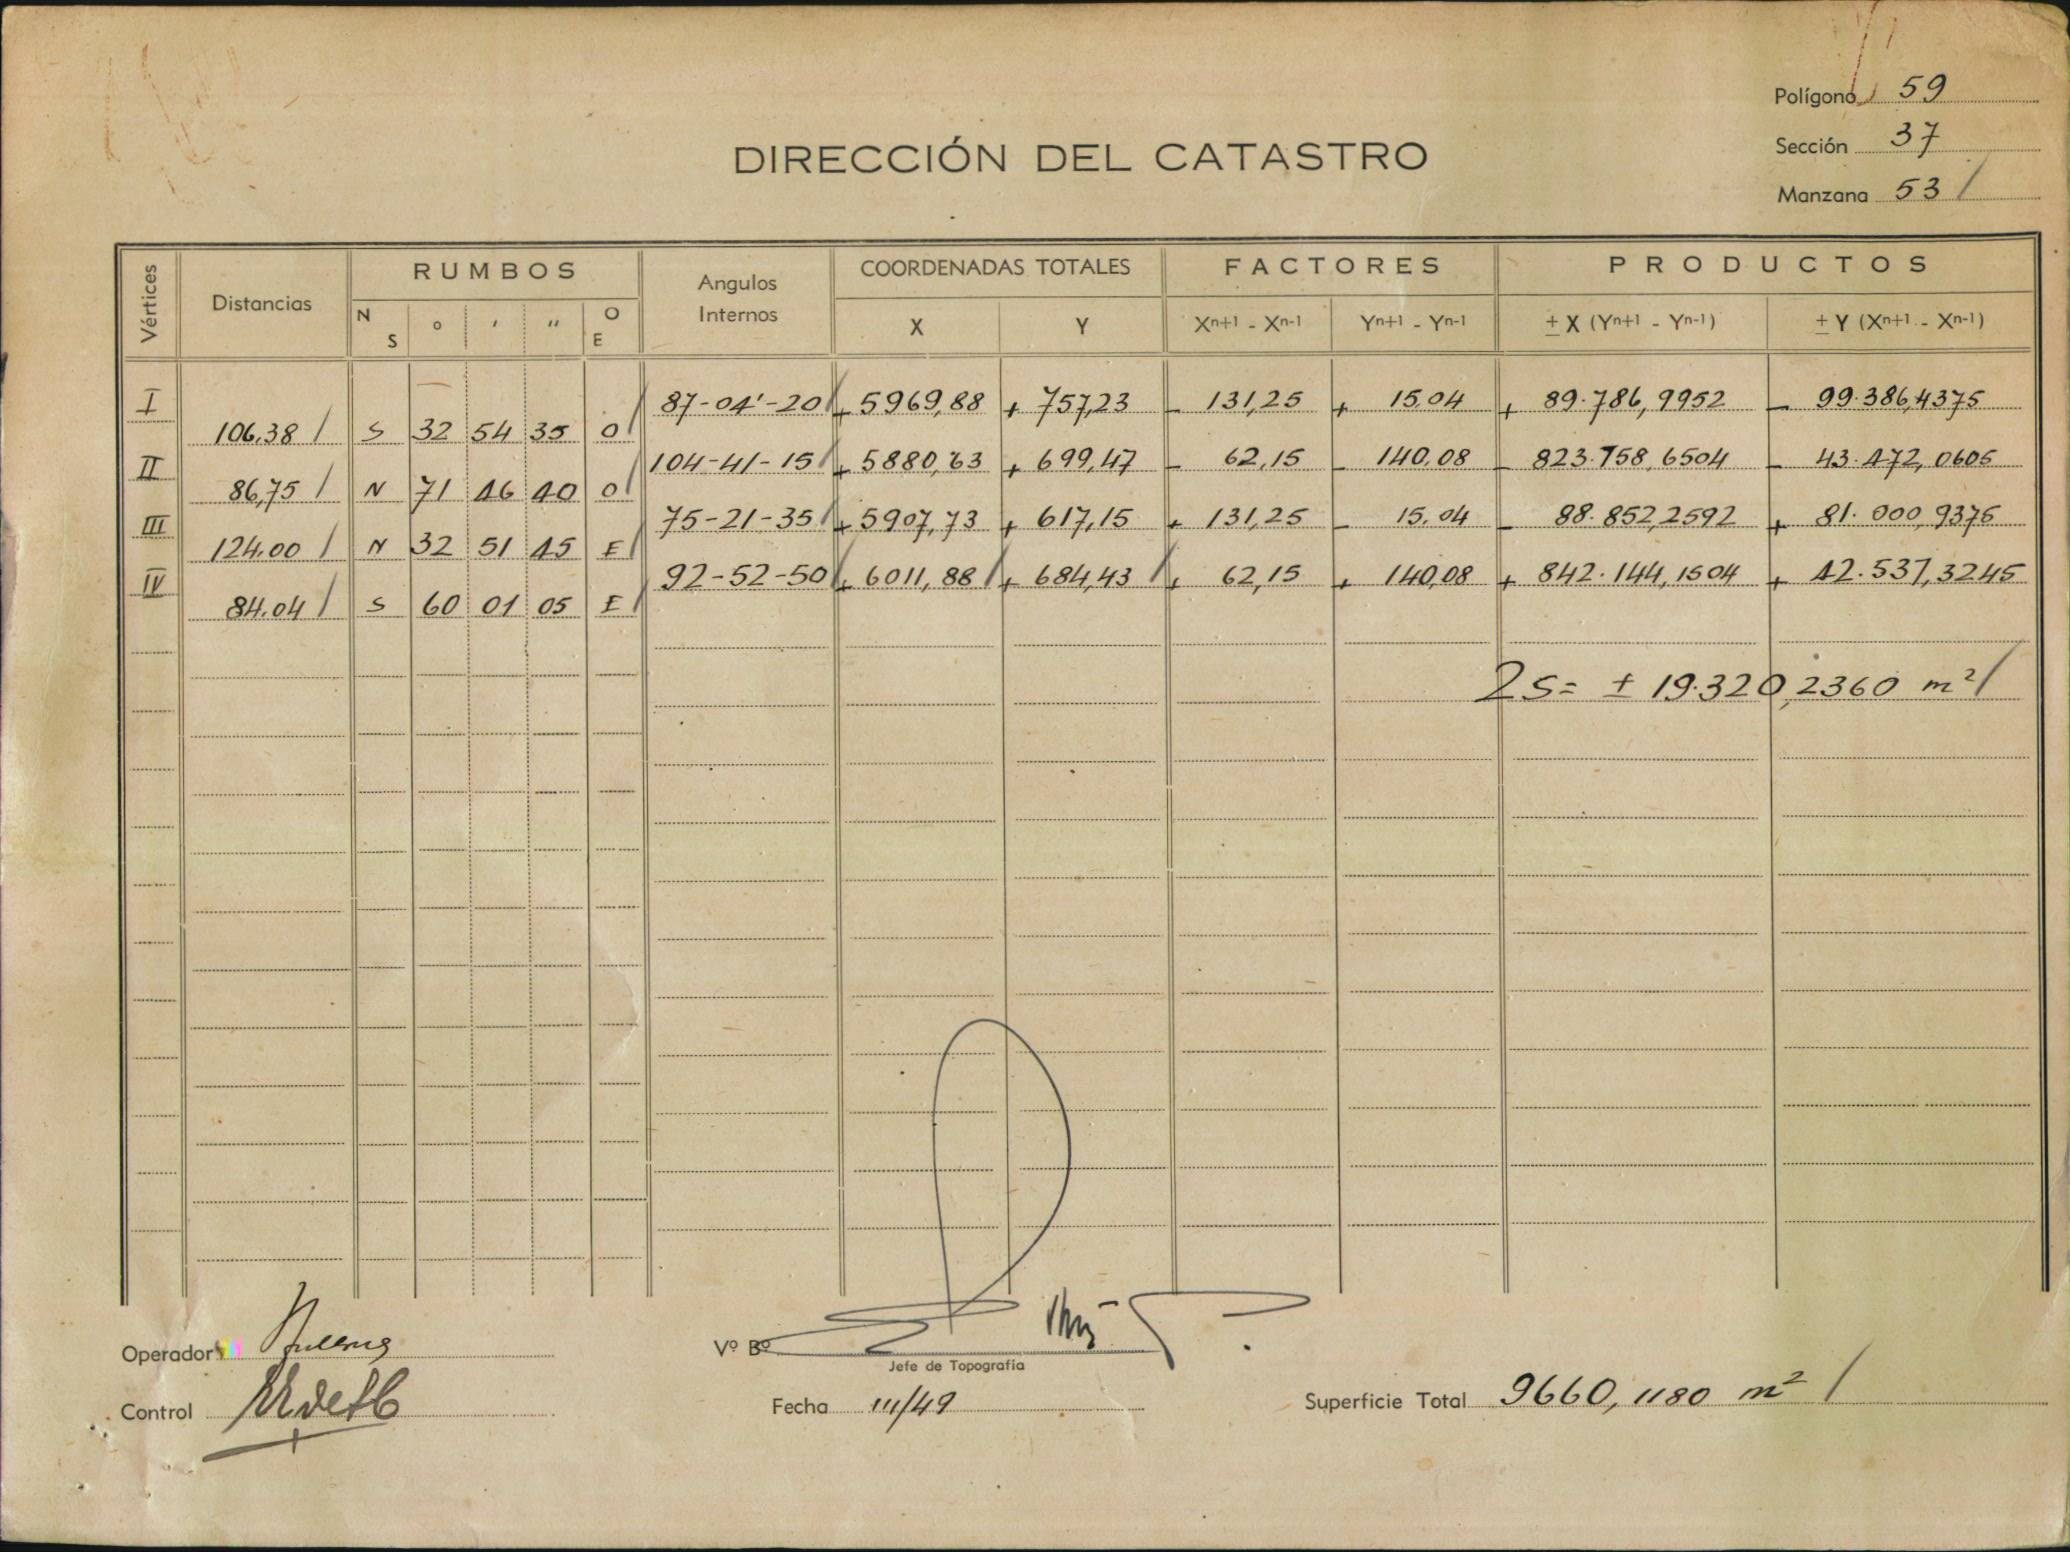 Polígono 59
Sección 37
Manzana 53 /
DIRECCIÓN DEL CATASTRO
Vértices Distancias RUMBOS Angulos Internos COORDENADAS TOTALES FACTORES PRODUCTOS
N S ° ′ ″ O E X Y Xn+1 - Xn-1 Yn+1 - Yn-1 ± X (Yn+1 - Yn-1) ± Y (Xn+1 - Xn-1)
I 87-04'-20 / + 5969,88 + 757,23 - 131,25 + 15,04 + 89.786,9952 - 99.386,4375
106,38 / S 32 54 35 O /
II 104-41-15 / + 5880,63 + 699,47 - 62,15 - 140,08 - 823.758,6504 - 43.472,0605
86,75 / N 71 46 40 O /
III 75-21-35 / + 5907,73 + 617,15 + 131,25 - 15,04 - 88.852,2592 + 81.000,9375
124.00 / N 32 51 45 E /
IV 92-52-50 / + 6011,88 / + 684,43 / + 62,15 + 140,08 + 842.144,1504 + 42.537,3245
84.04 / S 60 01 05 E /
2S= ± 19.320,2360 m² /
Operador
Vº Bº
Jefe de Topografía
Control
Fecha III/49
Superficie Total 9660,1180 m² /